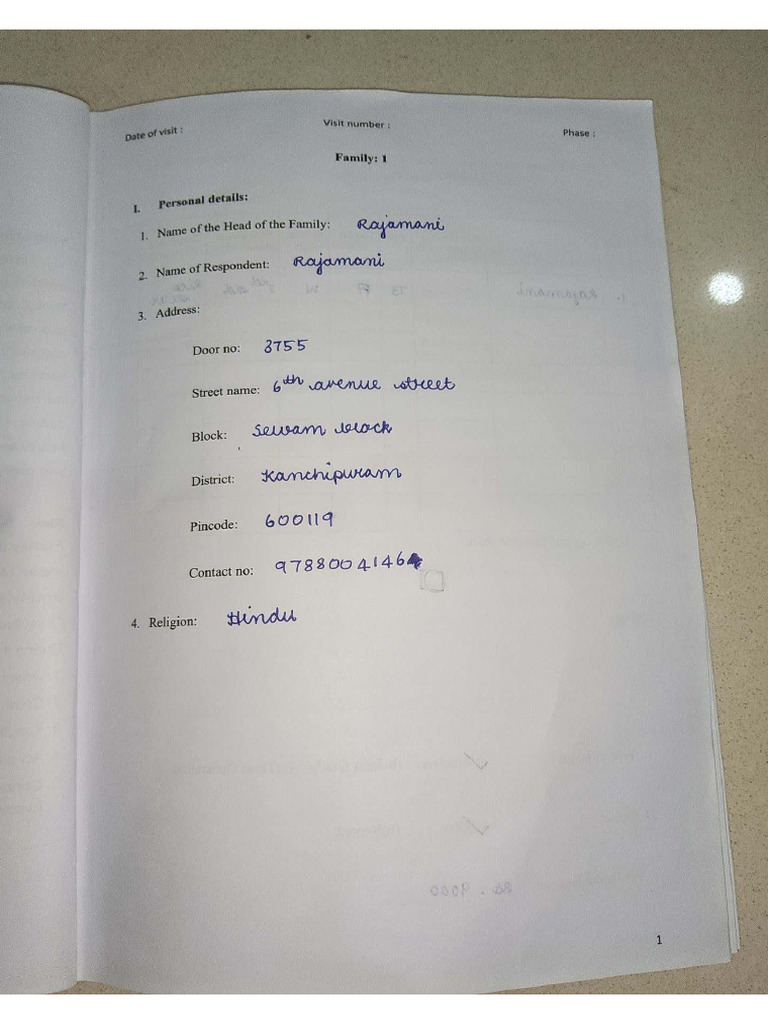 Date of visit : Visit number : Phase :
Family: 1
I. Personal details:
1. Name of the Head of the Family: Rajamani
2. Name of Respondent: Rajamani
3. Address:
Door no: 3755
Street name: 6th avenue street
Block: Sewam block
District: Kanchipuram
Pincode: 600119
Contact no: 9788004146
4. Religion: Hindu
1